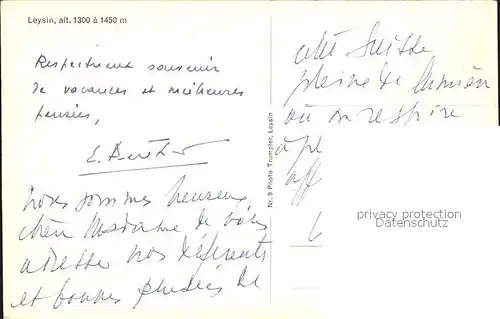 Leysin, alt. 1300 à 1450 m
Respectueux souvenir
de vacances et meilleures
pensées,
Nous sommes heureux,
chère Madame de vous
adresser nos déférents
et bonnes pensées de
cette Suisse
pleine de lumière
où on respire
à pl
aff
Nr. 9 Photo Trumpler, Leysin
privacy protection
Datenschutz